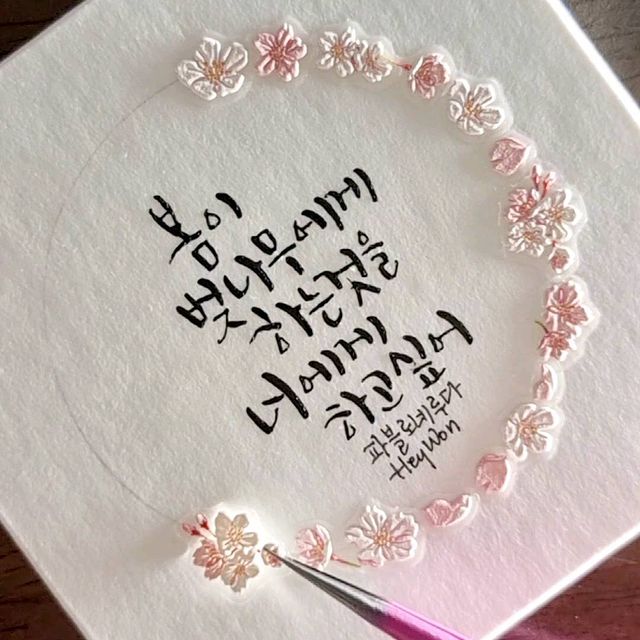 봄이
벚나무에게
하는것을
너에게
하고싶어
파블로네루다
HaeWon